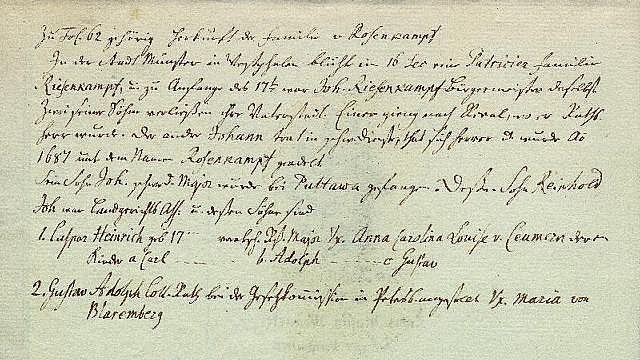 Zu Fol. 62 gehörig Herkunft der Familie v Rosenkampf
In der Stadt Münster in Westphalen blüht im 16 Sec eine Patricier Familie
Riesenkampf, u zu Anfange des 17t war Joh. Riesenkampf Bürgermeister daselbst.
Zwei seiner Söhne verließen ihre Vaterstadt. Einer gieng nach Reval, wo er Raths
herr wurde. Der andre Johann trat in schwed Dienste, that sich hervor u. wurde Ao
1687 mit dem Namen Rosenkampf geadelt.
Sein Sohn Joh. schwed Major wurde bei Pultawa gefangen. Dessen Sohn Reinhold
Joh war Landgerichts Ass. u dessen Söhne sind
1. Caspar Heinrich geb 17 Major Vx. Anna Carolina Louise v. Ceumern deren
Kinder a Carl b. Adolph c Gustav
2. Gustav Adolph Coll. Rath bei der Gesetzkommission in Petersb. angestellt Vx. Maria von
Blaremberg